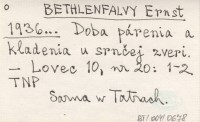 BETHLENFALVY Ernst
1936... Doba párenia a
kladenia u srnčej zveri.
– Lovec 10, nr 20: 1-2
TNP
Sarna w Tatrach.